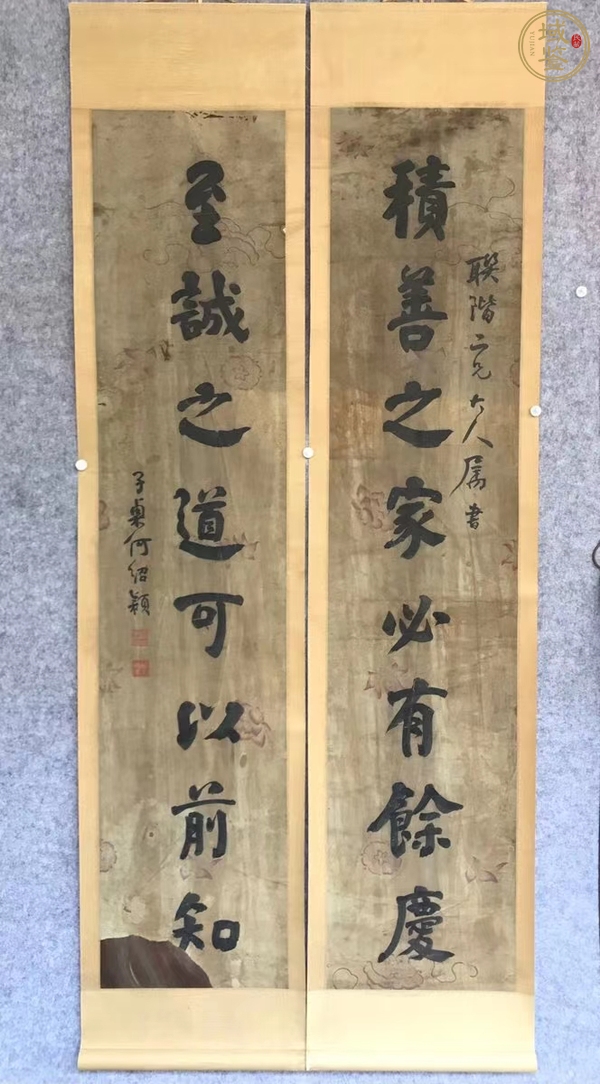 積善之家必有餘慶
聯階二兄大人属書
至誠之道可以前知
子貞何紹穎
域鉴
YUJIAN